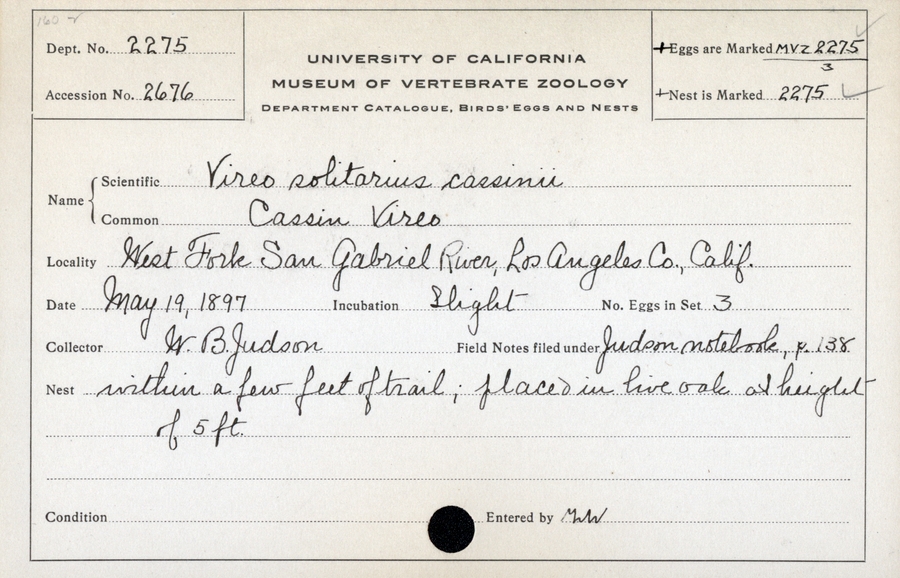 Dept. No. 2275
Accession No. 2676
UNIVERSITY OF CALIFORNIA
MUSEUM OF VERTEBRATE ZOOLOGY
DEPARTMENT CATALOGUE, BIRDS' EGGS AND NESTS
+Eggs are Marked MVZ 2275
3
+Nest is Marked 2275
Name
Scientific Vireo solitarius cassinii
Common Cassin Vireo
Locality West Fork San Gabriel River, Los Angeles Co., Calif.
Date May 19, 1897 Incubation Slight No. Eggs in Set 3
Collector W. B. Judson Field Notes filed under Judson notebook, p. 138
Nest within a few feet of trail; placed in live oak at height
of 5 ft.
Condition Entered by